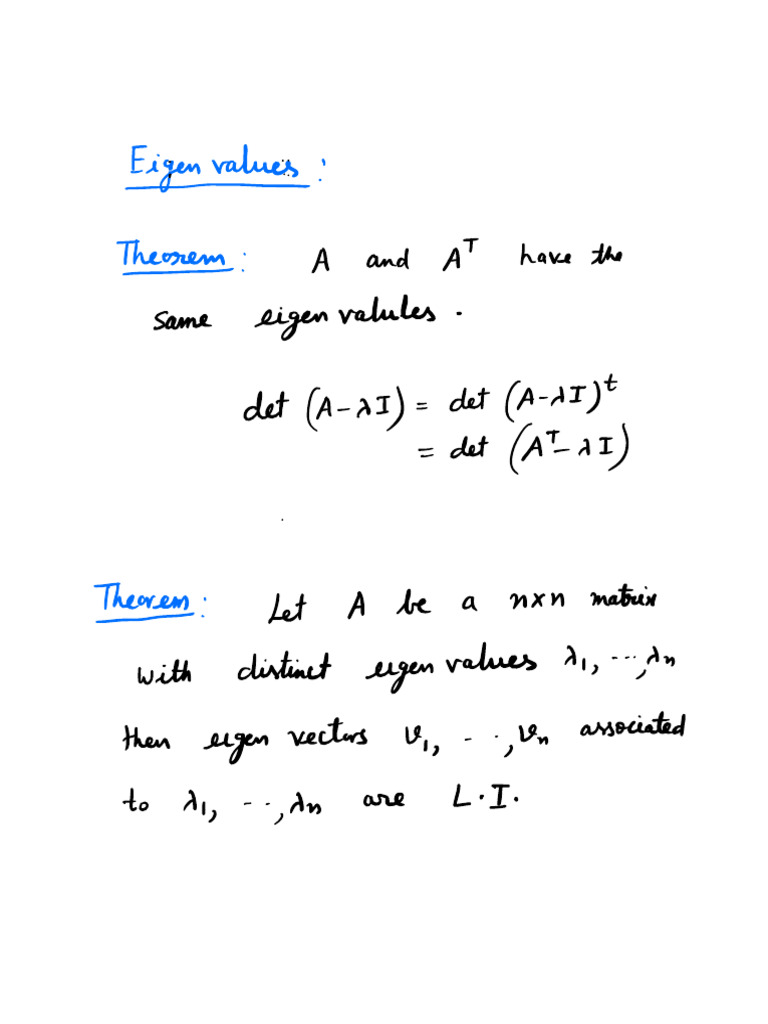 Eigen values:
Theorem: A and Aᵀ have the
same eigen valules.
det (A-λI) = det (A-λI)ᵗ
= det (Aᵀ-λI)
Theorem: Let A be a n×n matrix
with distinct eigen values λ₁, ..., λₙ
then eigen vectors v₁, ..., vₙ associated
to λ₁, ..., λₙ are L.I.